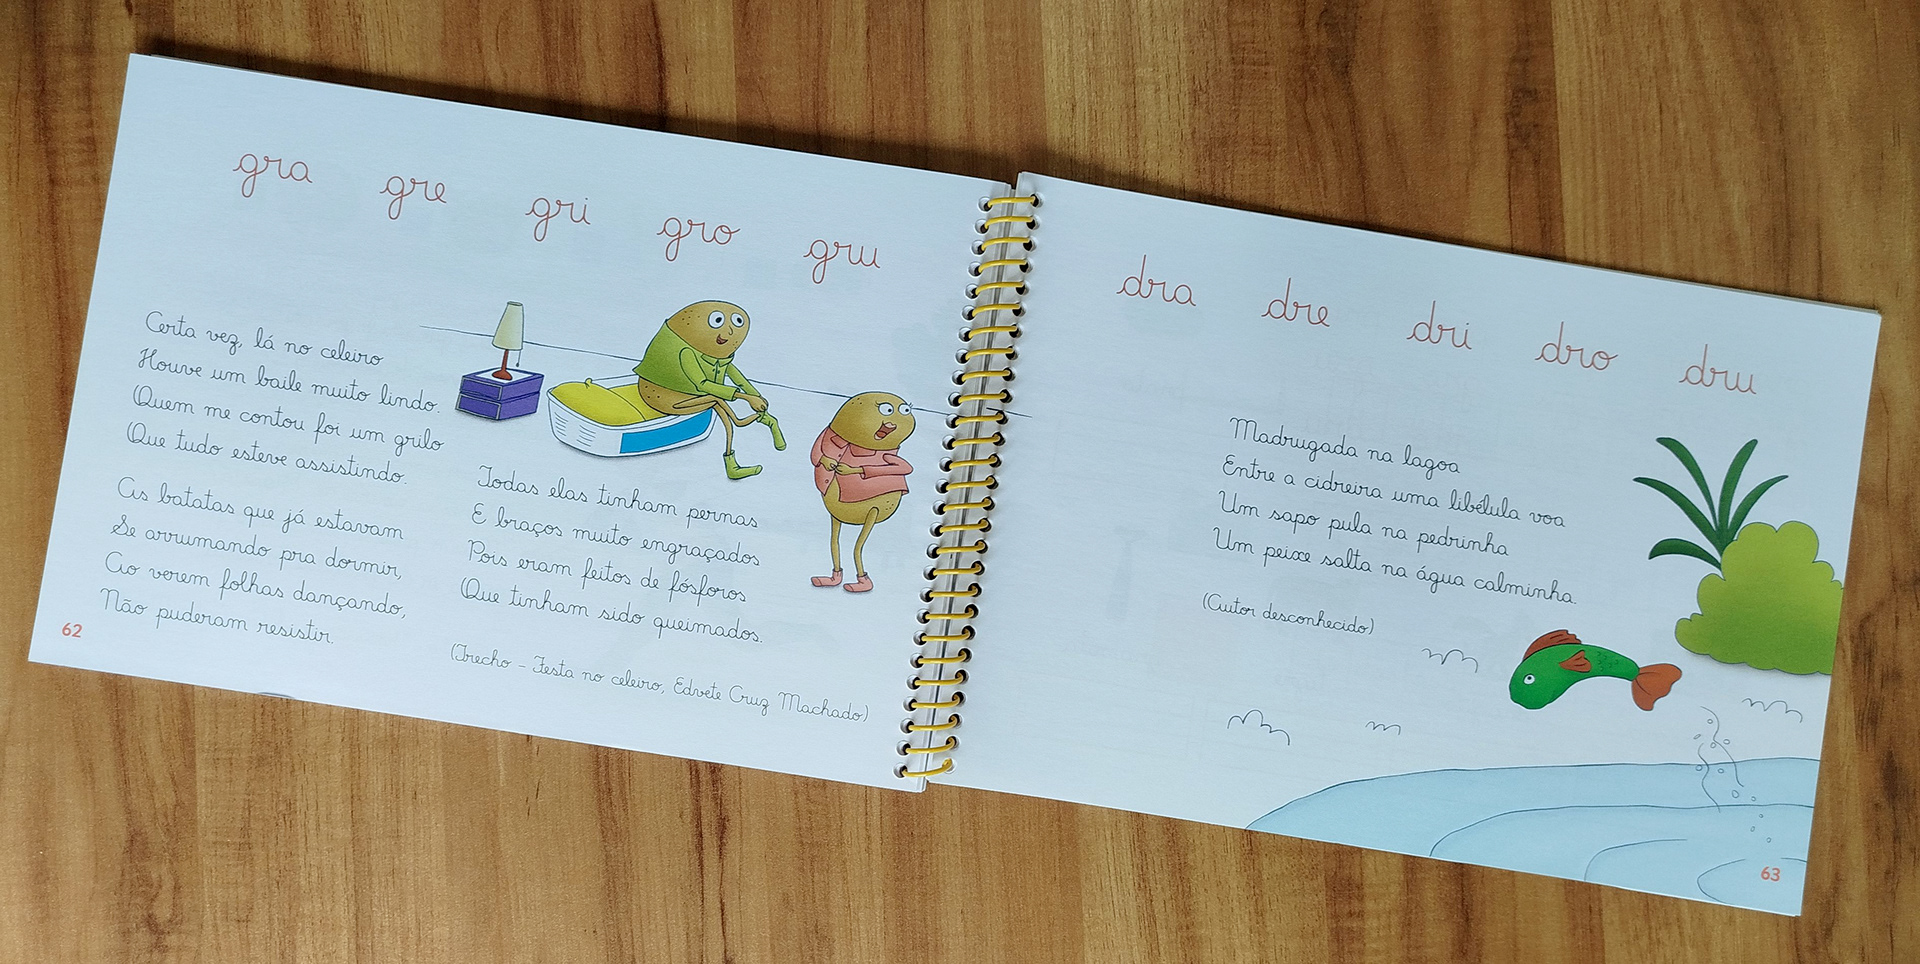 gra gre gri gro gru
Certa vez, lá no celeiro
Houve um baile muito lindo.
(Quem me contou foi um grilo
Que tudo esteve assistindo.
As batatas que já estavam
Se arrumando pra dormir,
Ao verem folhas dançando,
Não puderam resistir.
Todas elas tinham pernas
E braços muito engraçados
Pois eram feitos de fósforos
(Que tinham sido queimados.
(Trecho - Festa no celeiro, Edvete Cruz Machado)
62
dra dre dri dro dru
Madrugada na lagoa
Entre a cidreira uma libélula voa
Um sapo pula na pedrinha
Um peixe salta na água calminha.
(Autor desconhecido)
63